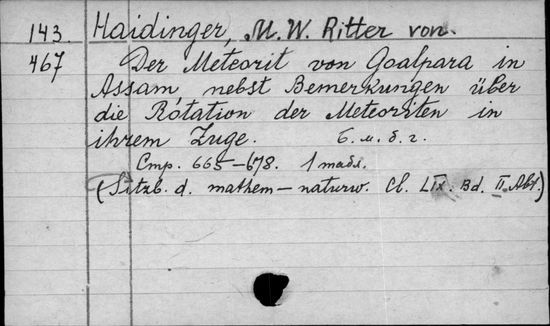 143. Haidinger, M. W. Ritter von.
467 Der Meteorit von Goalpara in
Assam nebst Bemerkungen über
die Rotation der Meteoriten in
ihrem Zuge. б. м. б. г.
Стр. 665–678. 1 табл.
(Sitzb. d. mathem–naturw. Cl. LIX. Bd. II Abt.)